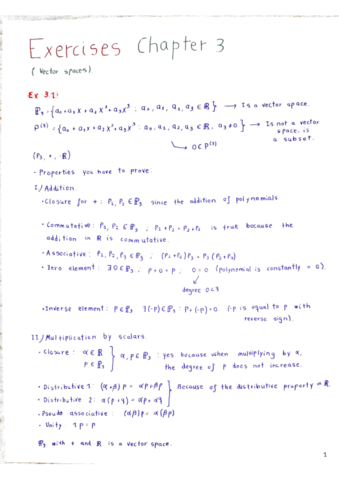 Exercises Chapter 3
(Vector spaces)
Ex 3.1:
ℙ₃ = {a₀+a₁x+a₂x²+a₃x³ : a₀, a₁, a₂, a₃ ∈ ℝ} → Is a vector space.
P⁽³⁾ = {a₀+a₁x+a₂x²+a₃x³ : a₀, a₁, a₂, a₃ ∈ ℝ, a₃≠0} → Is not a vector
space, is
a subset.
↳ 0∈P⁽³⁾
(P₃, +, ·ℝ)
• Properties you have to prove:
I/Addition.
• Closure for + : P₁, P₂ ∈ ℙ₃ since the addition of polynomials
• Commutative : P₁, P₂ ∈ ℙ₃ ; P₁+P₂ = P₂+P₁ is true because the
addition in ℝ is commutative.
• Associative : P₁, P₂, P₃ ∈ ℙ₃ ; (P₁+P₂)P₃ = P₁(P₂+P₃)
• Zero element : ∃0∈ℙ₃ · p+0=p ; 0=0 (polynomial is constantly = 0).
degree 0≤3
• Inverse element : p∈ℙ₃ ∃(-p)∈ℙ₃ : p+(-p)=0 (-p is equal to p with
reverse sign).
II/Multiplication by scalars.
• Closure : α∈ℝ
p∈ℙ₃ } α, p∈ℙ₃ : yes because when multiplying by α,
the degree of p does not increase.
• Distributive 1 : (α+β)p = αp+βp } Because of the distributive property in ℝ.
• Distributive 2 : α(p+q) = αp+αq
• Pseudo associative : (αβ)p = α(βp)
• Unity 1·p = p
ℙ₃ with + and ℝ is a vector space.
1